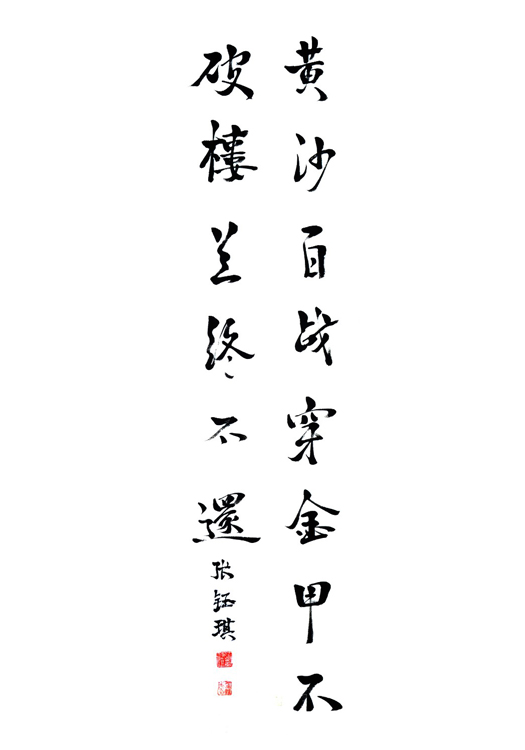 黄沙百战穿金甲不
破樓兰终不還
张钰琪